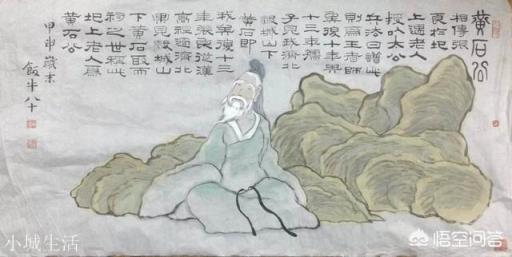 黄石公
相傳張
良於圯
上遇老人
授以太公
兵法曰讀此
則為王者師
矣後十年興
十三年孺
子見我濟北
穀城山下
黄石即
我矣後十三
年張良從漢
高祖過濟北
果見穀城山
下黄石取而
祠之世稱此
圯上老人為
黄石公
甲申歲末
飯牛八十
小城生活
悟空问答